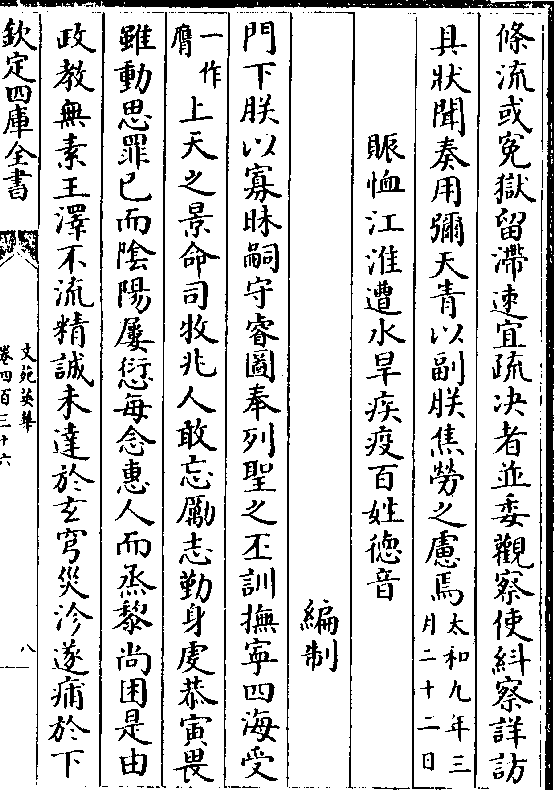 條流或寃獄留滯速宜疏决者並委觀察使糾察詳訪
具狀聞奏用彌天眚以副朕焦勞之慮焉太和九年三月二十二日
賑恤江淮遭水旱疾疫百姓德音
編制
門下朕以寡昧嗣守睿圖奉列聖之丕訓撫寧四海受
一作膺上天之景命司牧兆人敢忘勵志勤身虔恭寅畏
雖動思罪已而陰陽屢愆每念惠人而烝黎尚困是由
政教無素王澤不流精誠未達於玄穹災沴遂痡於下
欽定四庫全書
文苑英華
卷四百三十六
八